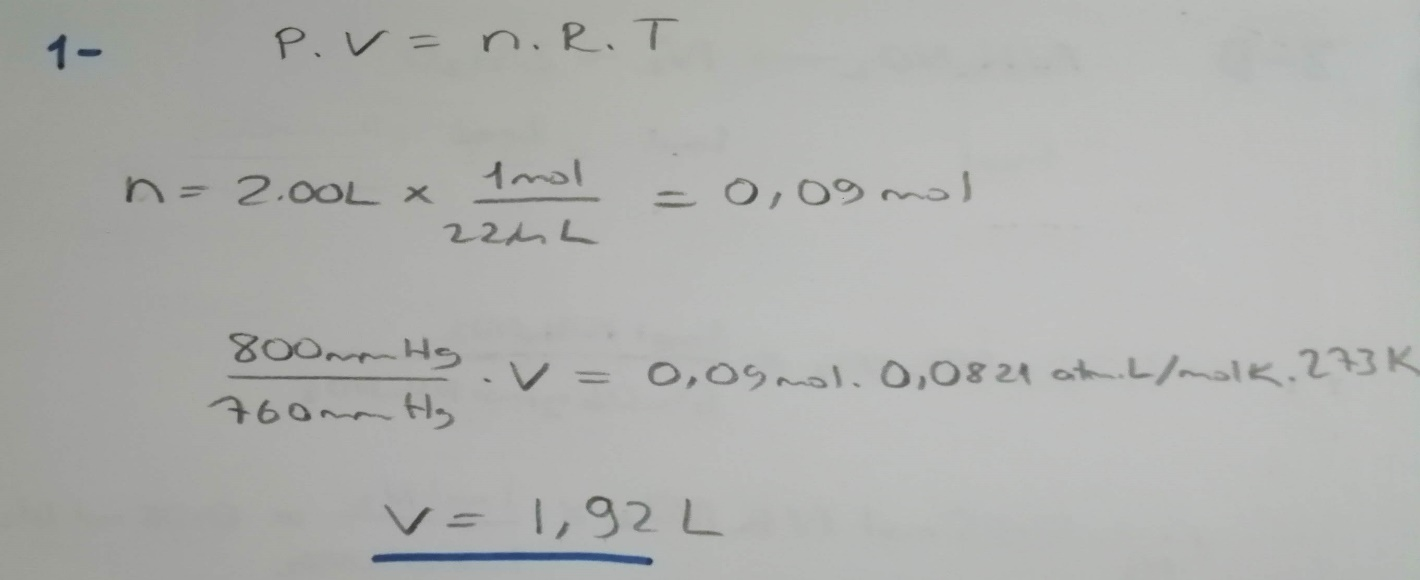 1- P.V = n.R.T
n = 2.00L x 1mol / 22,4 L = 0,09 mol
800mmHg / 760mmHg . V = 0,09mol. 0,0821 atm.L/molK. 273K
V = 1,92 L